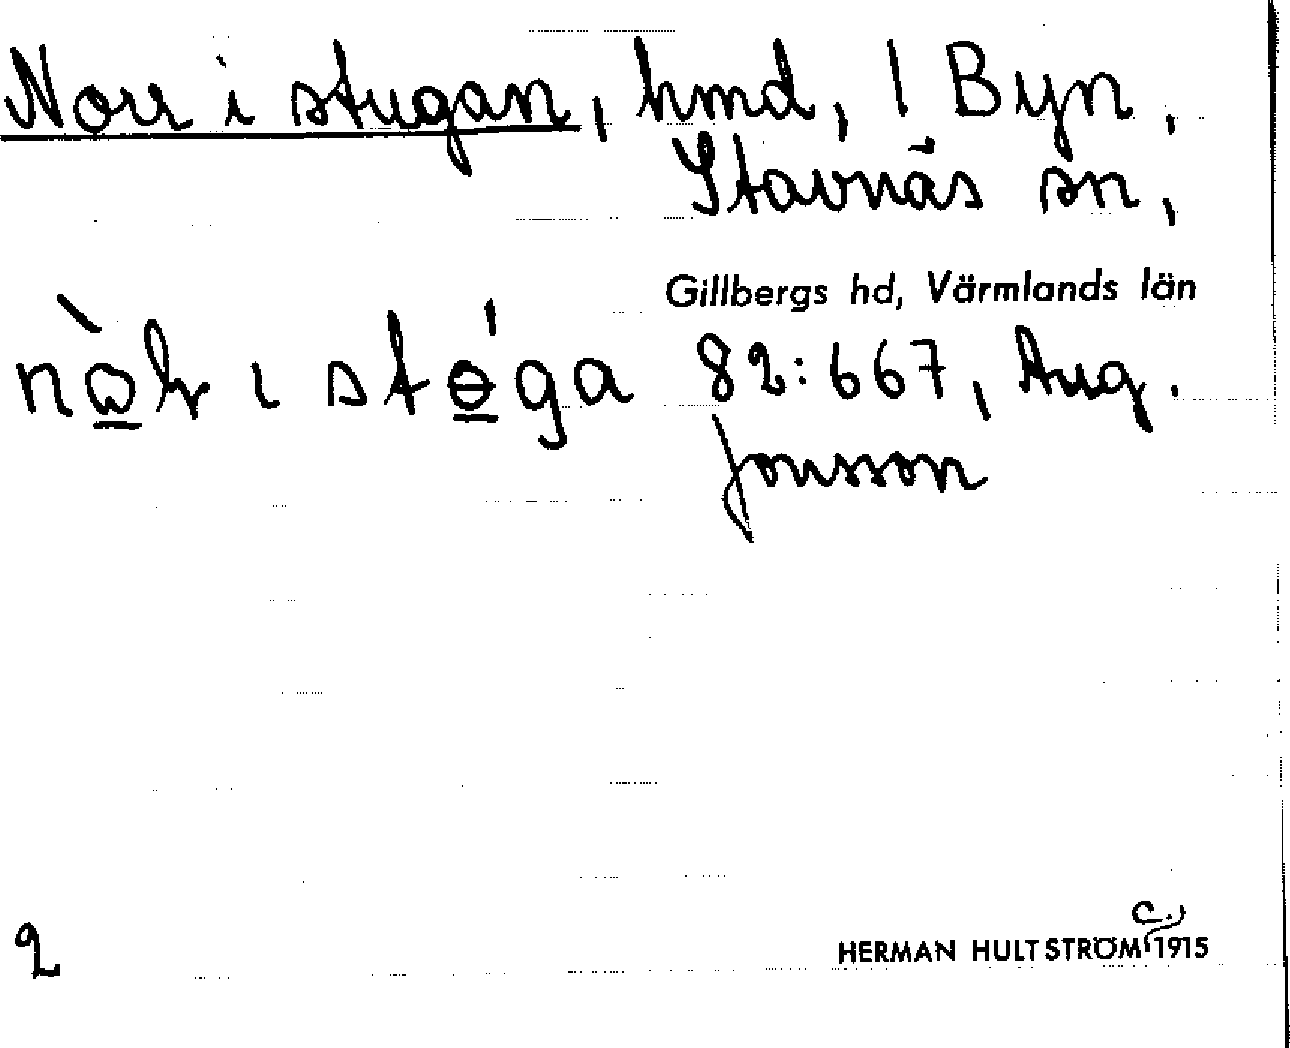 Norr i stugan, hmd, ! Byn,
Stavnäs sn,
Gillbergs hd, Värmlands län
82:667, Aug.
Jonsson
2
HERMAN HULTSTRÖM c. 1915